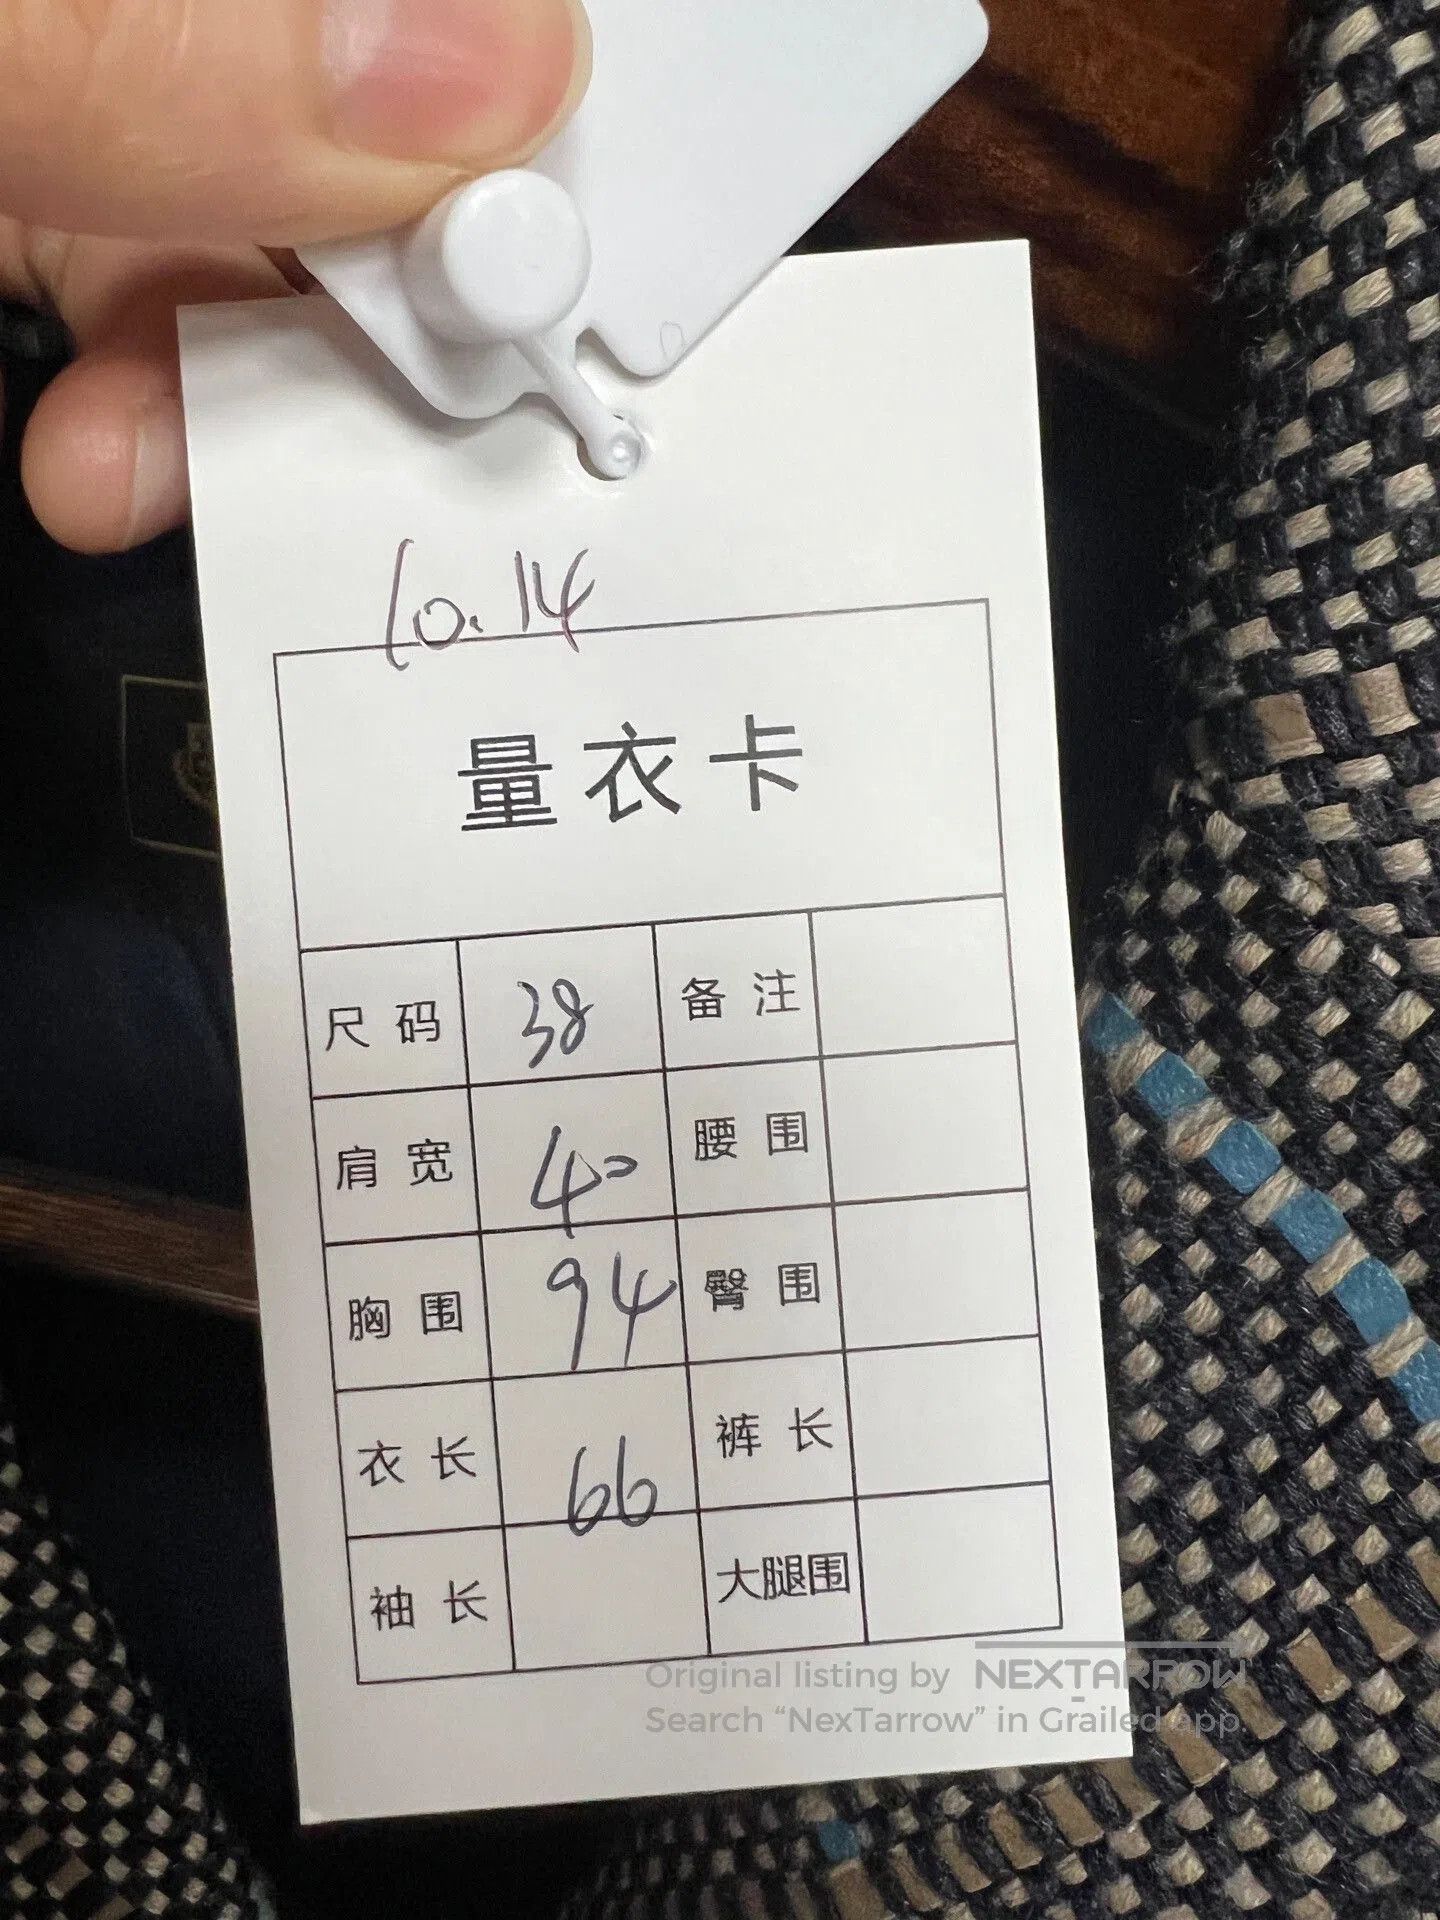 10.14
量衣卡
尺码 38 备注
肩宽 40 腰围
胸围 94 臀围
衣长 66 裤长
袖长 大腿围
Original listing by NEXTARROW
Search “NexTarrow” in Grailed app.